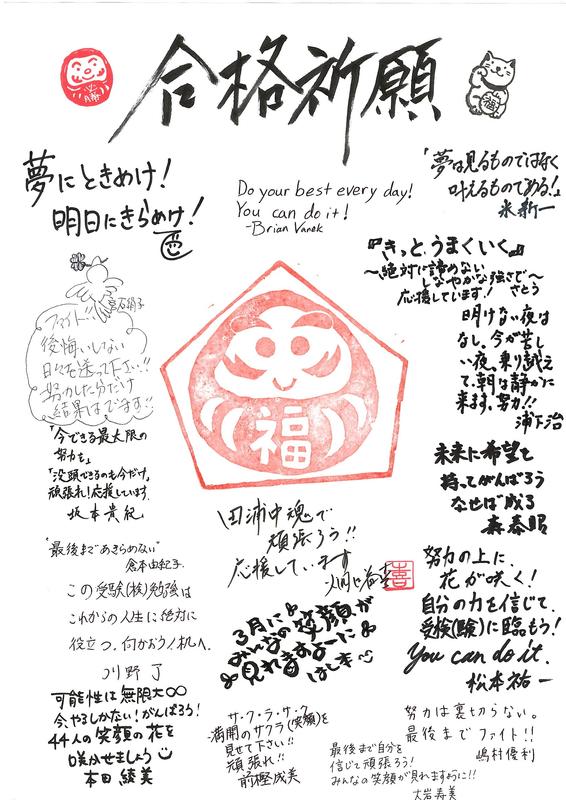 合格祈願
合格
福
夢にときめけ!
明日にきらめけ!
Do your best every day!
You can do it!
-Brian Vanek
「夢は見るものではなく
叶えるものである!」
米新一
『きっと、うまくいく』
〜絶対に諦めない
しなやかな強さで〜
応援しています! さとう
宮石絹子
ファイト!!
後悔いしない
日々を送って下さい!!
努力した分だけ
結果はでます!!
明けない夜は
なし。今が苦し
い夜。乗り越え
て、朝は静かに
来ます。努力!!
浦下治
福
「今できる最大限の
努力を」
「没頭できるのも今だけ」
頑張れ!応援しています
坂本貴紀
未来に希望を
持ってがんばろう
なせば成る
森泰昭
田浦中魂で
頑張ろう!!
応援しています
喜
"最後まであきらめない"
倉本由紀子
この受験(検)勉強は
これからの人生に絶対に
役立つ。向かおう!机へ。
川野 了
努力の上に、
花が咲く!
自分の力を信じて、
受検(験)に臨もう!
You can do it.
松本祐一
3月によ
みんなの笑顔が
見れますよーによ
はし本
可能性は無限大∞
今、やるしかない!がんばろう!
44人の笑顔の花を
咲かせましょう
本田 綾美
サ・ク・ラ・サ・ク
満開のサクラ(笑顔)を
見せて下さい!!
頑張れ!!
前樫成美
努力は裏切らない。
最後までファイト!!
嶋村優利
最後まで自分を
信じて頑張ろう!
みんなの笑顔が見れますように!!
大岩寿美